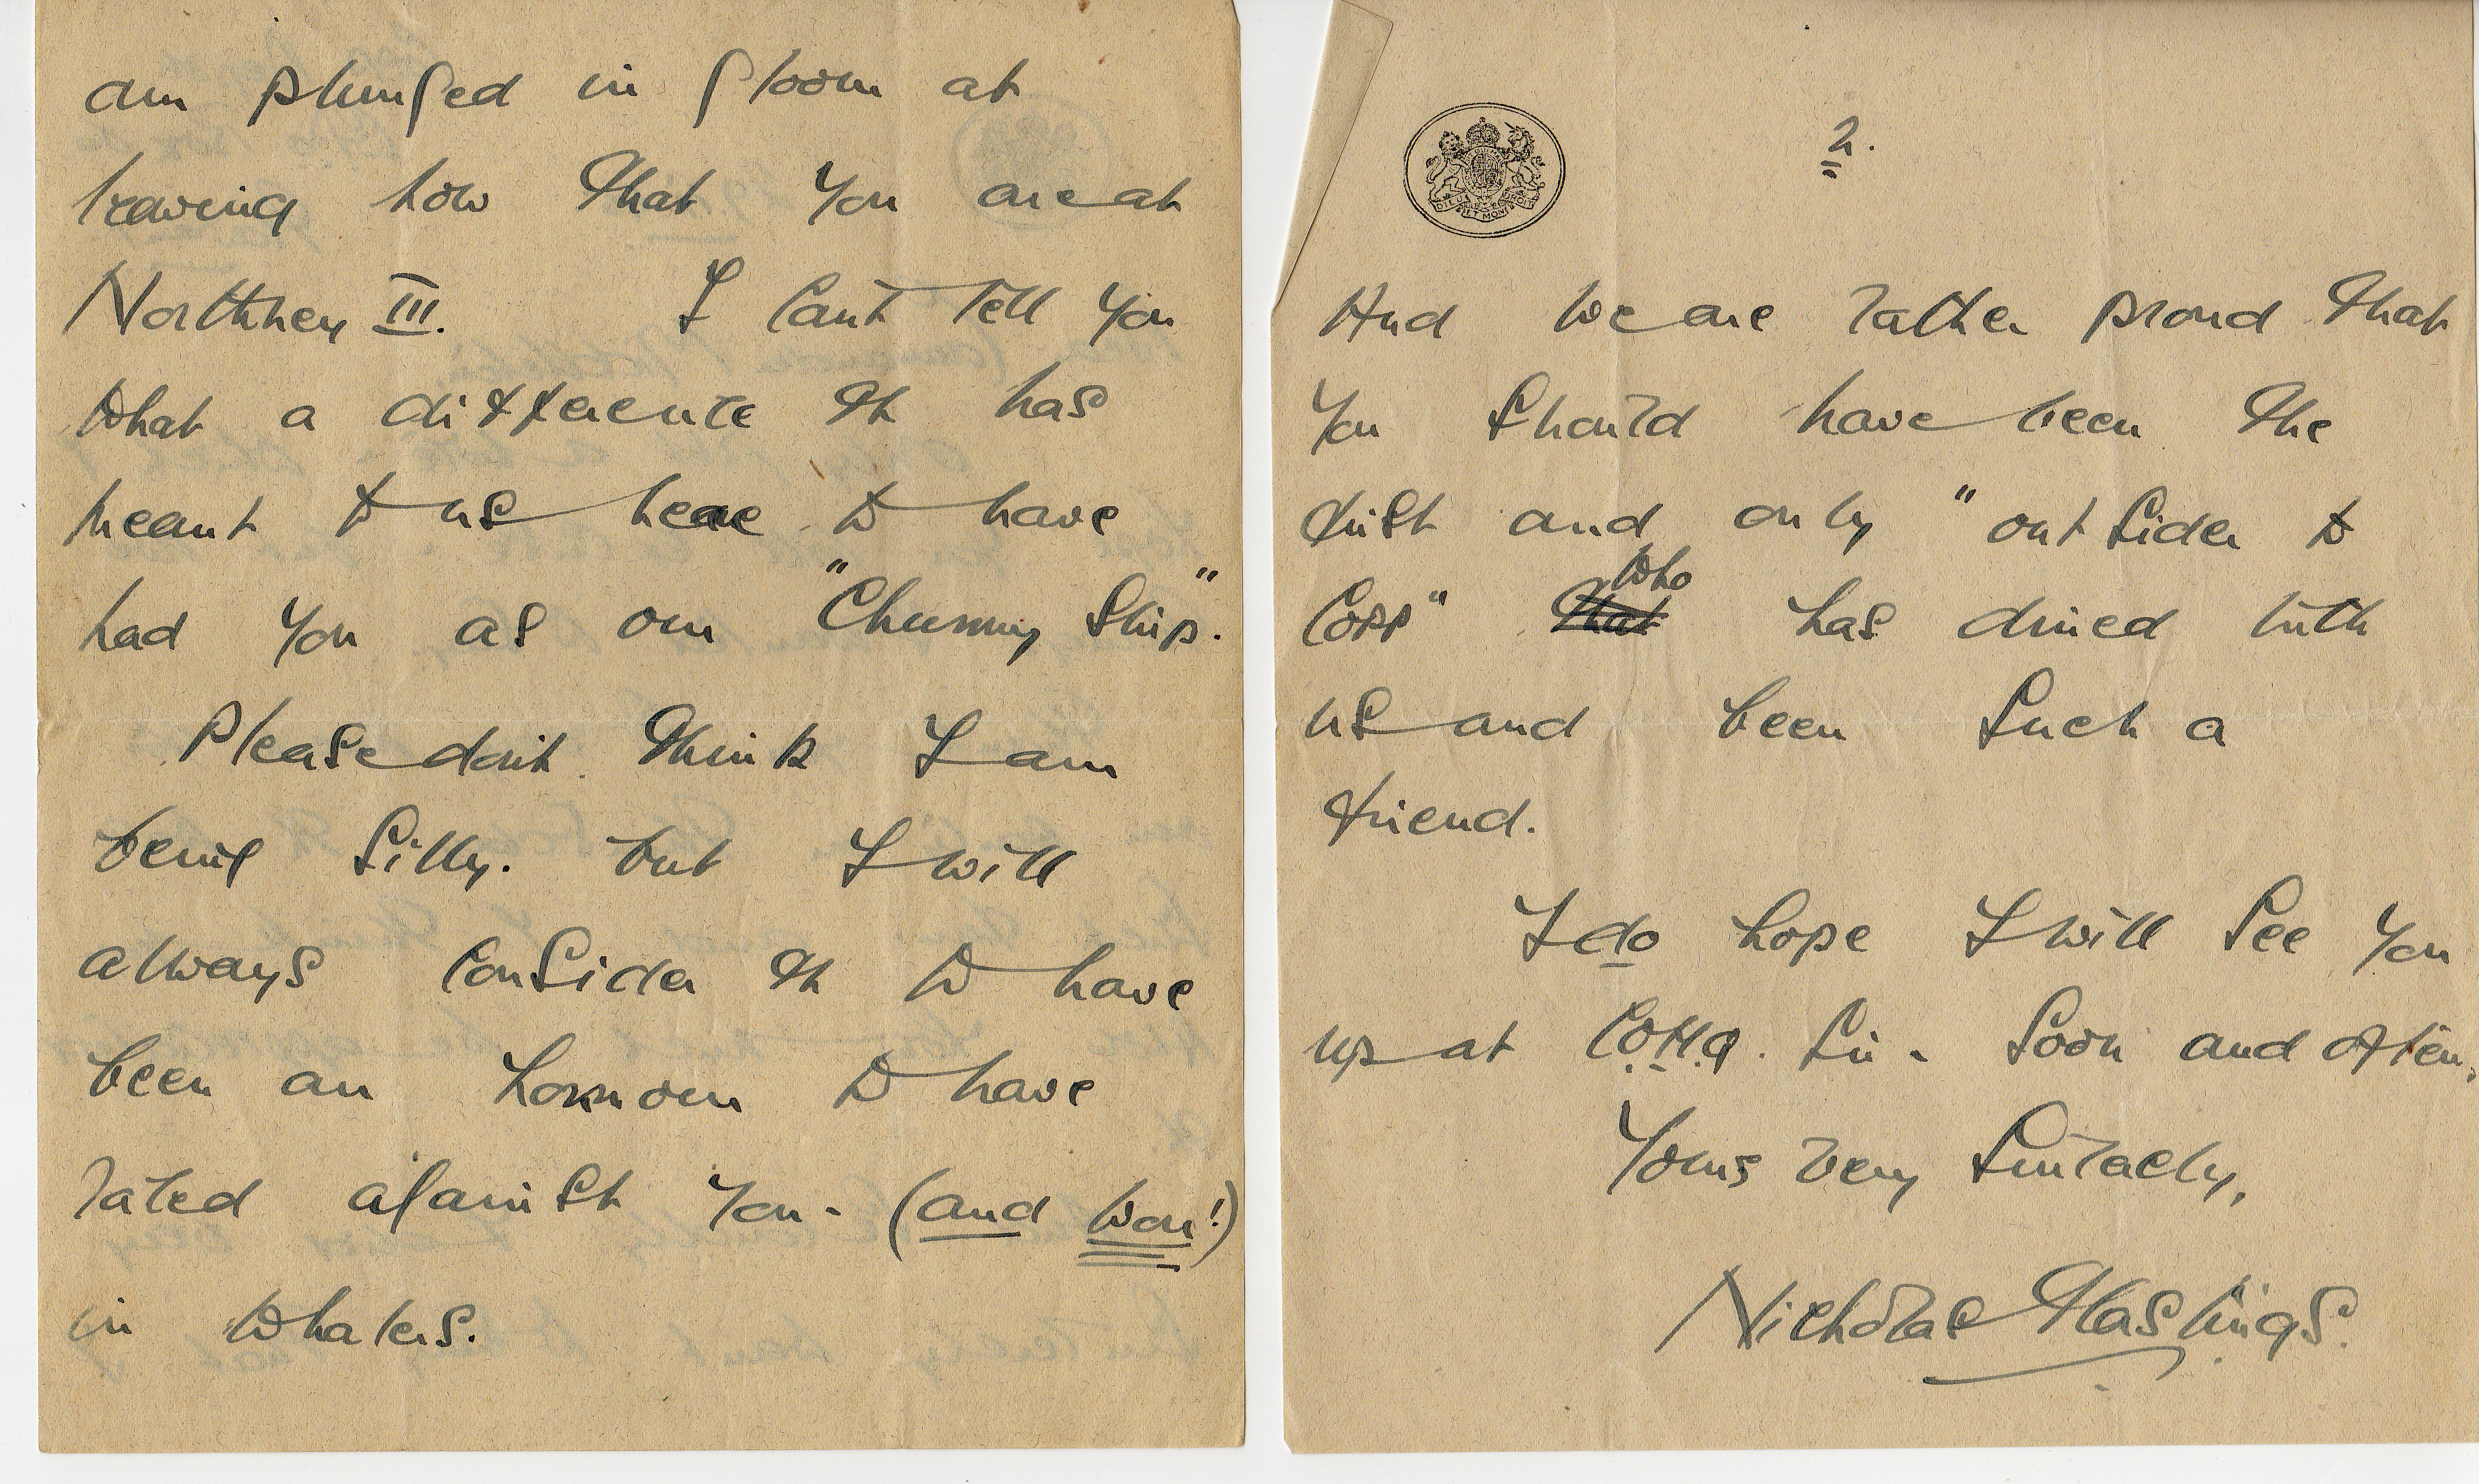 am plunged in gloom at
leaving now that you are at
Northney III. I can't tell you
what a difference it has
meant to us here to have
had you as our "Chummy Ship".
Please don't think I am
being silly. but I will
always consider it to have
been an honnour to have
raced against you - (and won!)
in whalers.
2.
And we are rather proud that
you should have been the
first and only "outsider to
Copp" that who has dined with
us and been such a
friend.
I do hope I will see you
up at Sir - soon and often.
Yours very sincerely,
Nicholas Hastings.